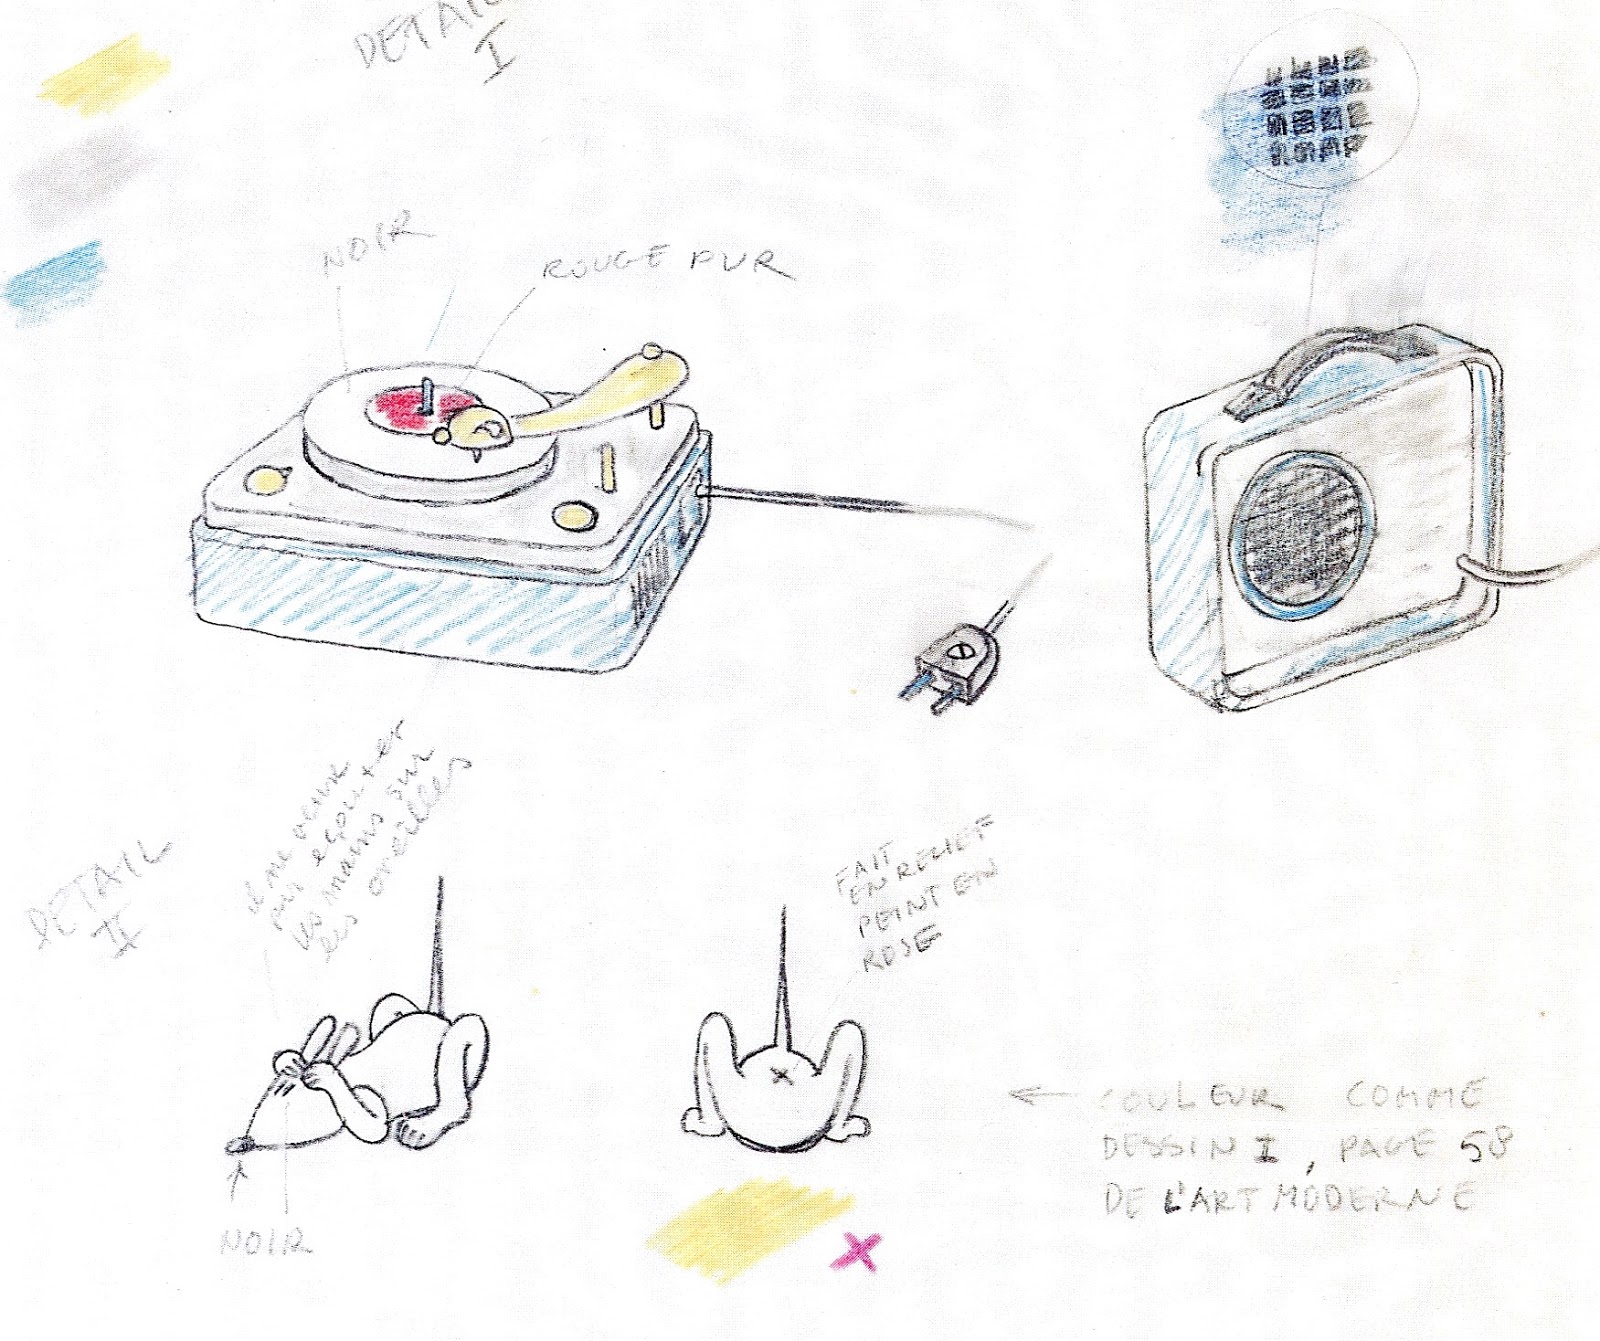 DETAIL
I
NOIR
ROUGE PUR
DETAIL
II
elle ne veut
pas écouter
les mains sur
les oreilles
FAIT
EN RELIEF
PEINT EN
ROSE
NOIR
COULEUR COMME
DESSIN I, PAGE 58
DE L'ART MODERNE